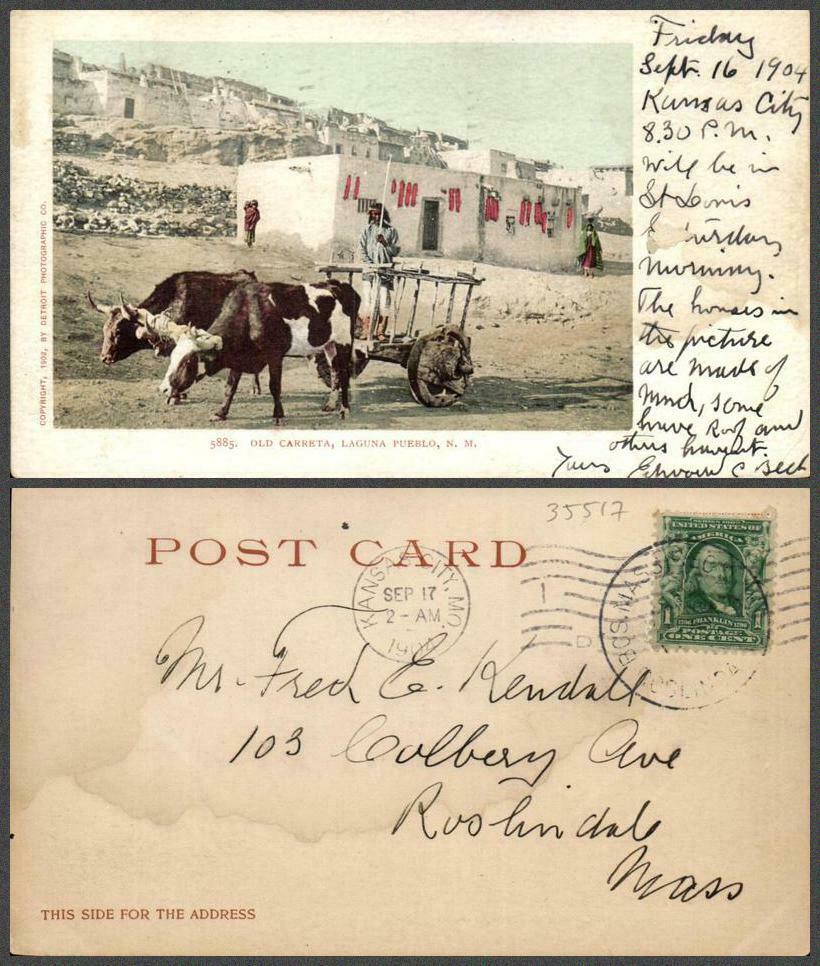 Friday
Sept. 16 1904
Kansas City
8.30 P.M.
will be in
St Louis
morning.
The houses in
the picture
are made of
mud, some
have Roof and
others havent.
Yours Edward C Beck
COPYRIGHT, 1902, BY DETROIT PHOTOGRAPHIC CO.
5885. OLD CARRETA, LAGUNA PUEBLO, N. M.
35517
POST CARD
KANSAS CITY, MO.
SEP 17
2 - AM
1904
1
D
SERIES 1902
UNITED STATES OF
AMERICA
1 FRANKLIN 1
POSTAGE
ONE CENT
BOSTON, MASS
Mr. Fred E. Kendall
103 Colbery Ave
Roslindale
Mass
THIS SIDE FOR THE ADDRESS